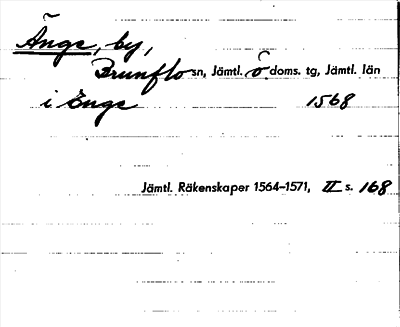 Änge, by,
Brunflo sn, Jämtl. Ö doms. tg, Jämtl. län
i Enge 1568
Jämtl. Räkenskaper 1564-1571, II s. 168